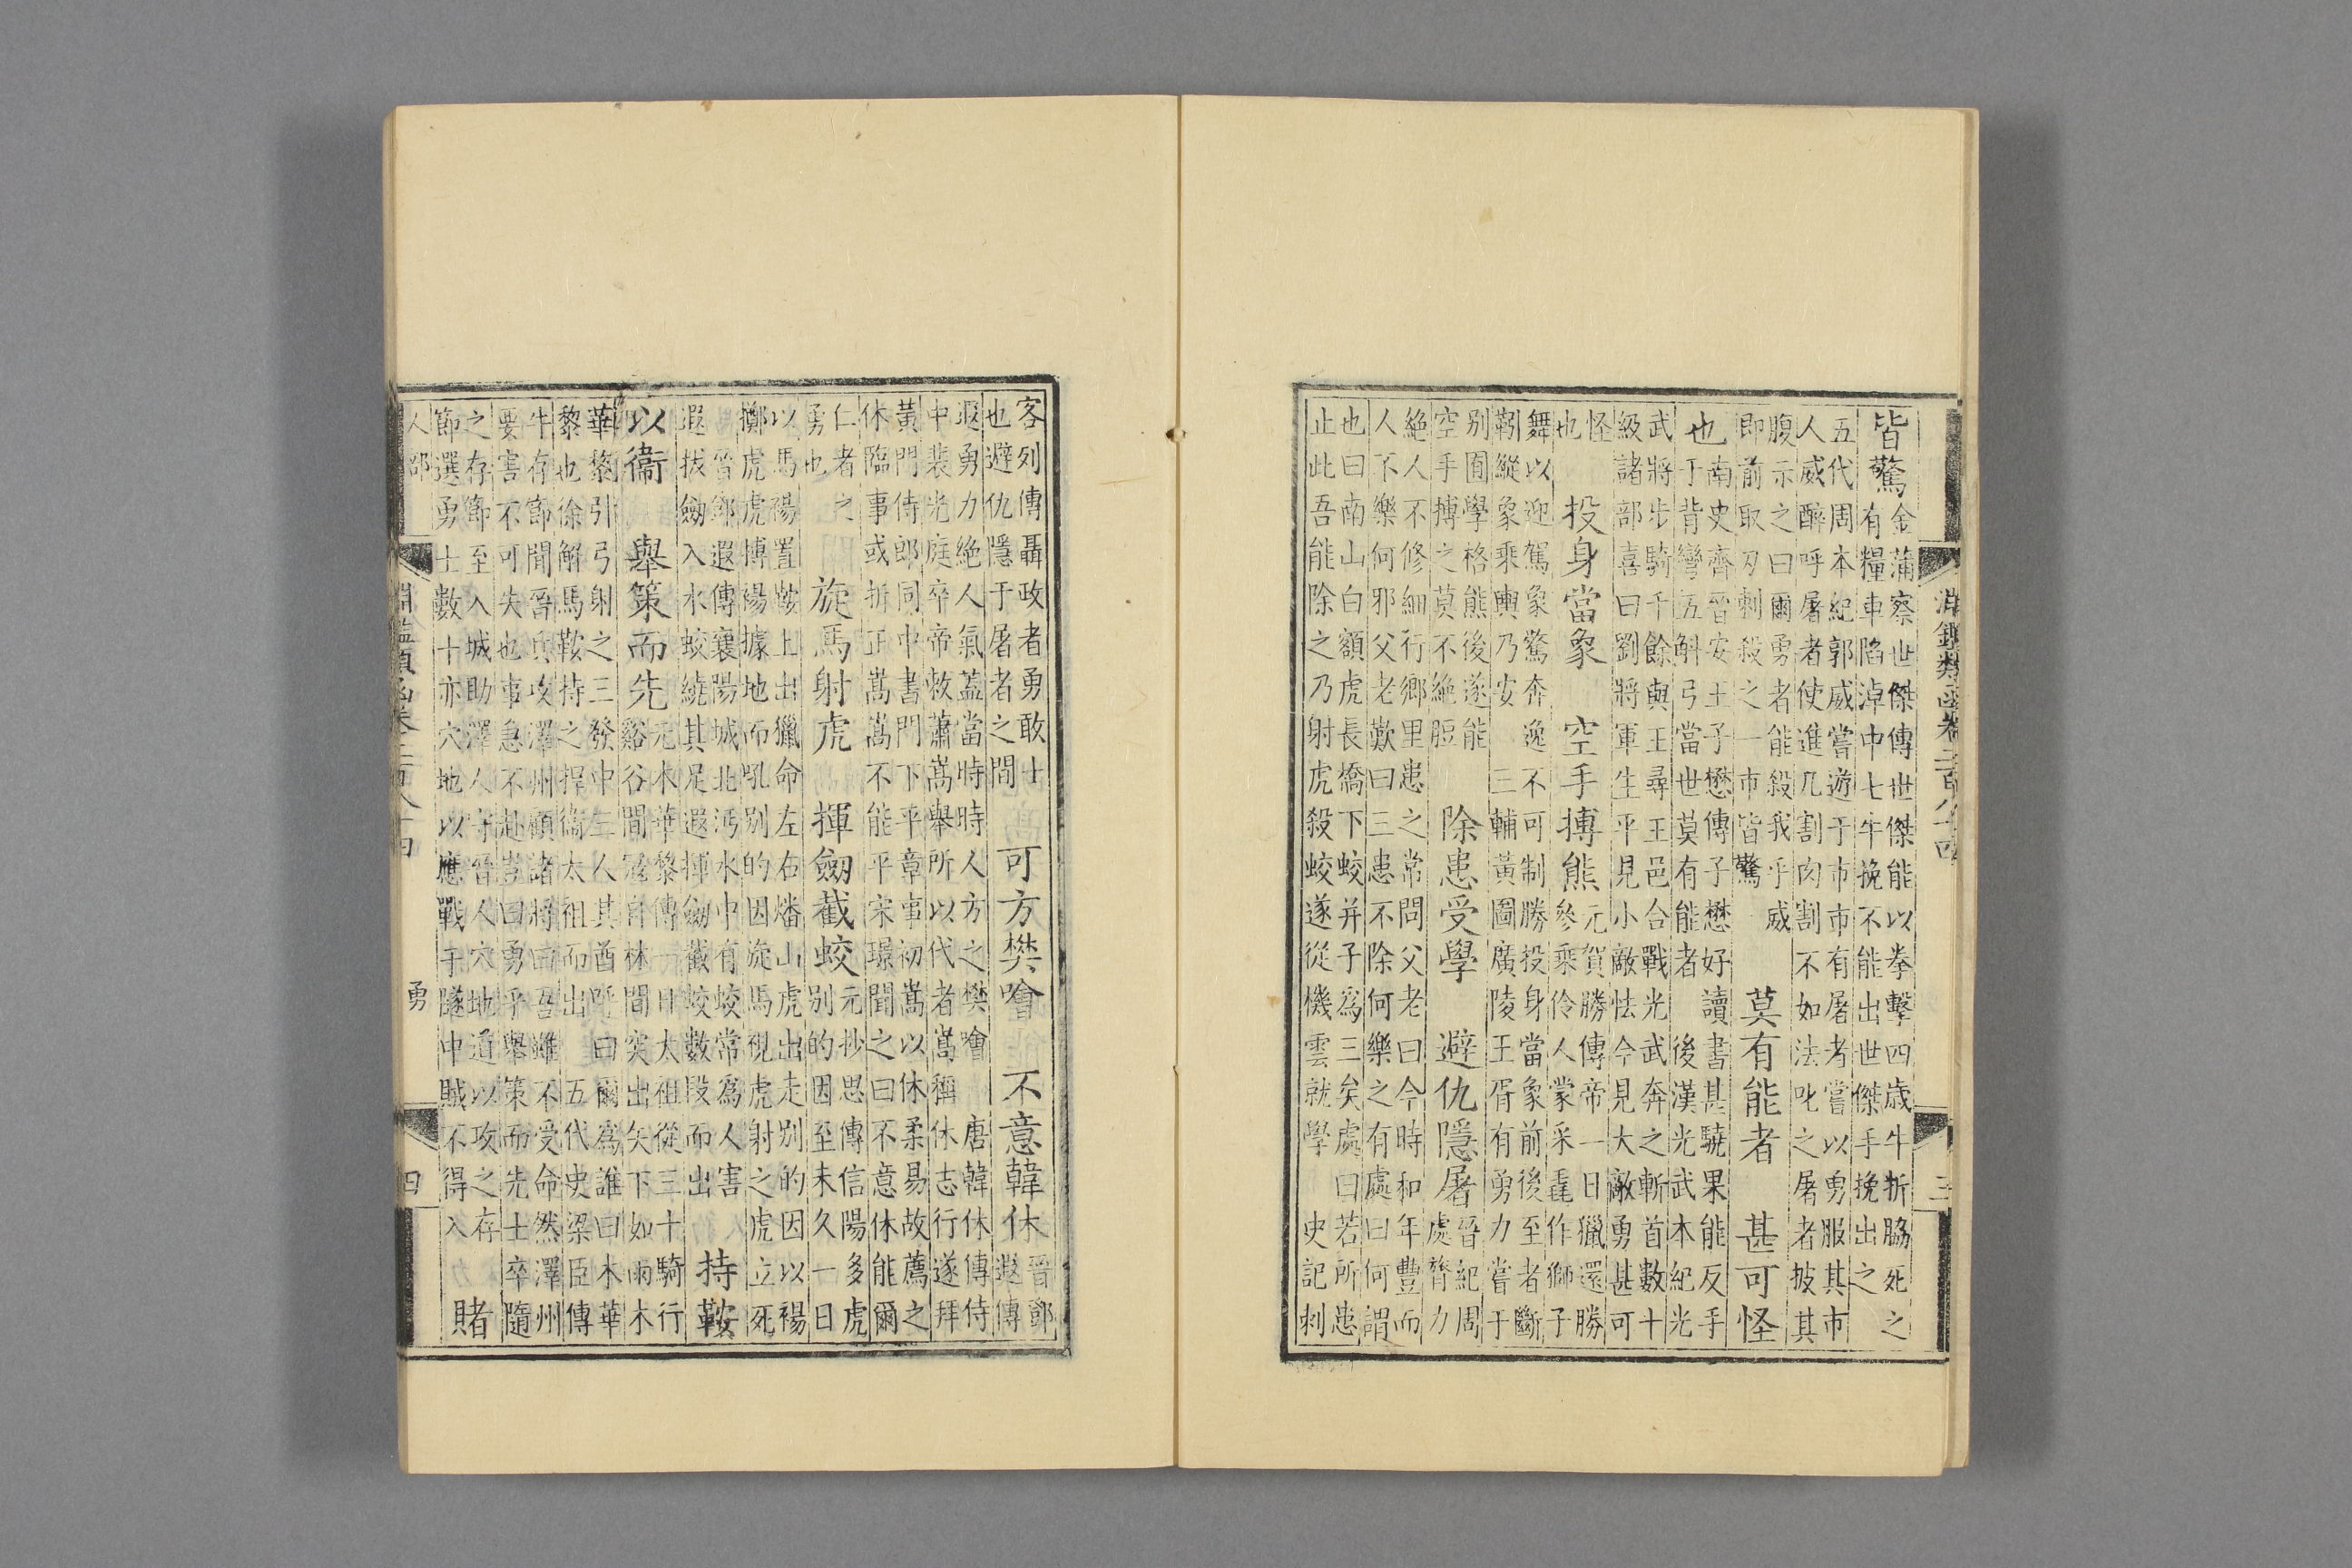 淵鑑類函卷二百八十四
三
皆驚
金蒲察世傑傳世傑能以拳擊四歲牛折脇死之
有糧車陷淖中七牛挽不能出世傑手挽出之
五代周本紀郭威嘗遊于市市有屠者嘗以勇服其市
人威醉呼屠者使進几割肉割不如法叱之屠者披其
腹示之曰爾勇者能殺我乎威
即前取刃刺殺之一市皆驚
莫有能者
甚可怪
也
南史齊晉安王子懋傳子懋好讀書甚驍果能反手
于背彎五斛弓當世莫有能者
後漢光武本紀光
武將步騎千餘與王尋王邑合戰光武奔之斬首數十
級諸部喜曰劉將軍生平見小敵怯今見大敵勇甚可
怪
也
投身當象
空手搏熊
元賀勝傳帝一日獵還勝
參乘伶人蒙采毳作獅子
舞以迎駕象驚奔逸不可制勝投身當象前後至者斷
靷縱象乘輿乃安
三輔黃圖廣陵王胥有勇力嘗于
别囿學格熊後遂能
空手搏之莫不絶脰
除患受學
避仇隱屠
晉紀周
處膂力
絶人不修細行鄉里患之常問父老曰今時和年豐而
人不樂何邪父老歎曰三患不除何樂之有處曰何謂
也曰南山白額虎長橋下蛟并子爲三矣處曰若所患
止此吾能除之乃射虎殺蛟遂從機雲就學
史記刺
客列傳聶政者勇敢士
也避仇隱于屠者之間
可方樊噲
不意韓休
晉鄧
遐傳
遐勇力絶人氣蓋當時時人方之樊噲
唐韓休傳侍
中裴光庭卒帝敕蕭嵩舉所以代者嵩稱休志行遂拜
黃門侍郎同中書門下平章事初嵩以休柔易故薦之
休臨事或折正嵩嵩不能平宋璟聞之曰不意休能爾
仁者之
勇也
旋馬射虎
揮劒截蛟
元抄思傳信陽多虎
别的因至未久一日
以馬裼置鞍上出獵命左右燔山虎出走别的因以裼
擲虎虎搏裼據地而吼别的因旋馬視虎射之虎立死
晉鄧遐傳襄陽城北沔水中有蛟常爲人害
遐拔劒入水蛟繞其足遐揮劒截蛟數段而出
持鞍
以衞
舉策而先
元木華黎傳一日太祖從三十騎行
谿谷間寇自林間突出矢下如雨木
華黎引弓射之三發中三人其酋呼曰爾爲誰曰木華
黎也徐解馬鞍持之捍衞太祖而出
五代史梁臣傳
牛存節聞晉兵攻澤州顧諸將曰吾雖不受命然澤州
要害不可失也事急不赴豈曰勇乎舉策而先士卒隨
之存節至入城助澤人守晉人穴地道以攻之存
節選勇士數十亦穴地以應戰于隧中賊不得入
賭
人部
淵鑑類函卷二百八十四
勇
四